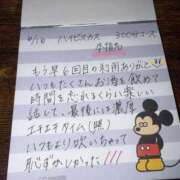 9/16 ハイビスカス 300分コース
もう早6回目の利用ありがと♡
いつもたくさんお酒も飲めて
時間を忘れるくらい楽しい
話して、最後には濃厚
エキエキタイム(照)
いつもより吹いちゃって
恥ずかしかった!!!